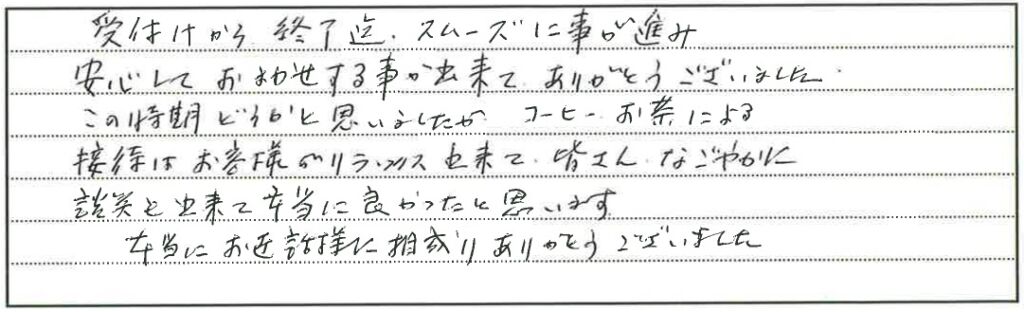 受付けから終了迄、スムーズに事が進み
安心しておまかせする事が出来て、ありがとうございました。
この時期どうかと思いましたが、コーヒー、お茶による
接待はお客様がリラックス出来て、皆さん、なごやかに
談笑と出来て本当に良かったと思います。
本当にお世話様に相成りありがとうございました